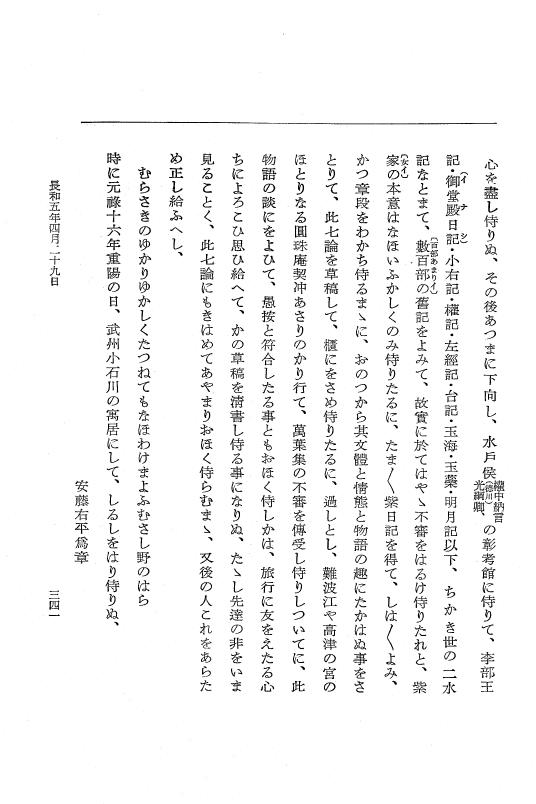 心を盡し侍りぬ、その後あつまに下向し、水戶侯權中納言(德川)光綱卿、の彰考館に侍りて、李部王
記・御堂殿日記(イナシ)・小右記・權記・左經記・台記・玉海・玉蘂・明月記以下、ちかき世の二水
記なとまて、數百部(百部あまりイ)の舊記をよみて、故實に於てはやゝ不審をはるけ侍りたれと、紫
家(女イ)の本意はなほいふかしくのみ侍りたるに、たま〱紫日記を得て、しは〱よみ、
かつ章段をわかち侍るまゝに、おのつから其文體と情態と物語の趣にたかはぬ事をさ
とりて、此七論を草稿して、櫃にをさめ侍りたるに、過しとし、難波江や高津の宮の
ほとりなる圓珠庵契冲あさりのかり行て、萬葉集の不審を傳受し侍りしついてに、此
物語の談にをよひて、愚按と符合したる事ともおほく侍しかは、旅行に友をえたる心
ちによろこひ思ひ給へて、かの草稿を淸書し侍る事になりぬ、たゝし先達の非をいま
見ることく、此七論にもきはめてあやまりおほく侍らむまゝ、又後の人これをあらた
め正し給ふへし、
むらさきのゆかりゆかしくたつねてもなほわけまよふむさし野のはら
時に元祿十六年重陽の日、武州小石川の寓居にして、しるしをはり侍りぬ、
安藤右平爲章
長和五年四月二十九日
三四一